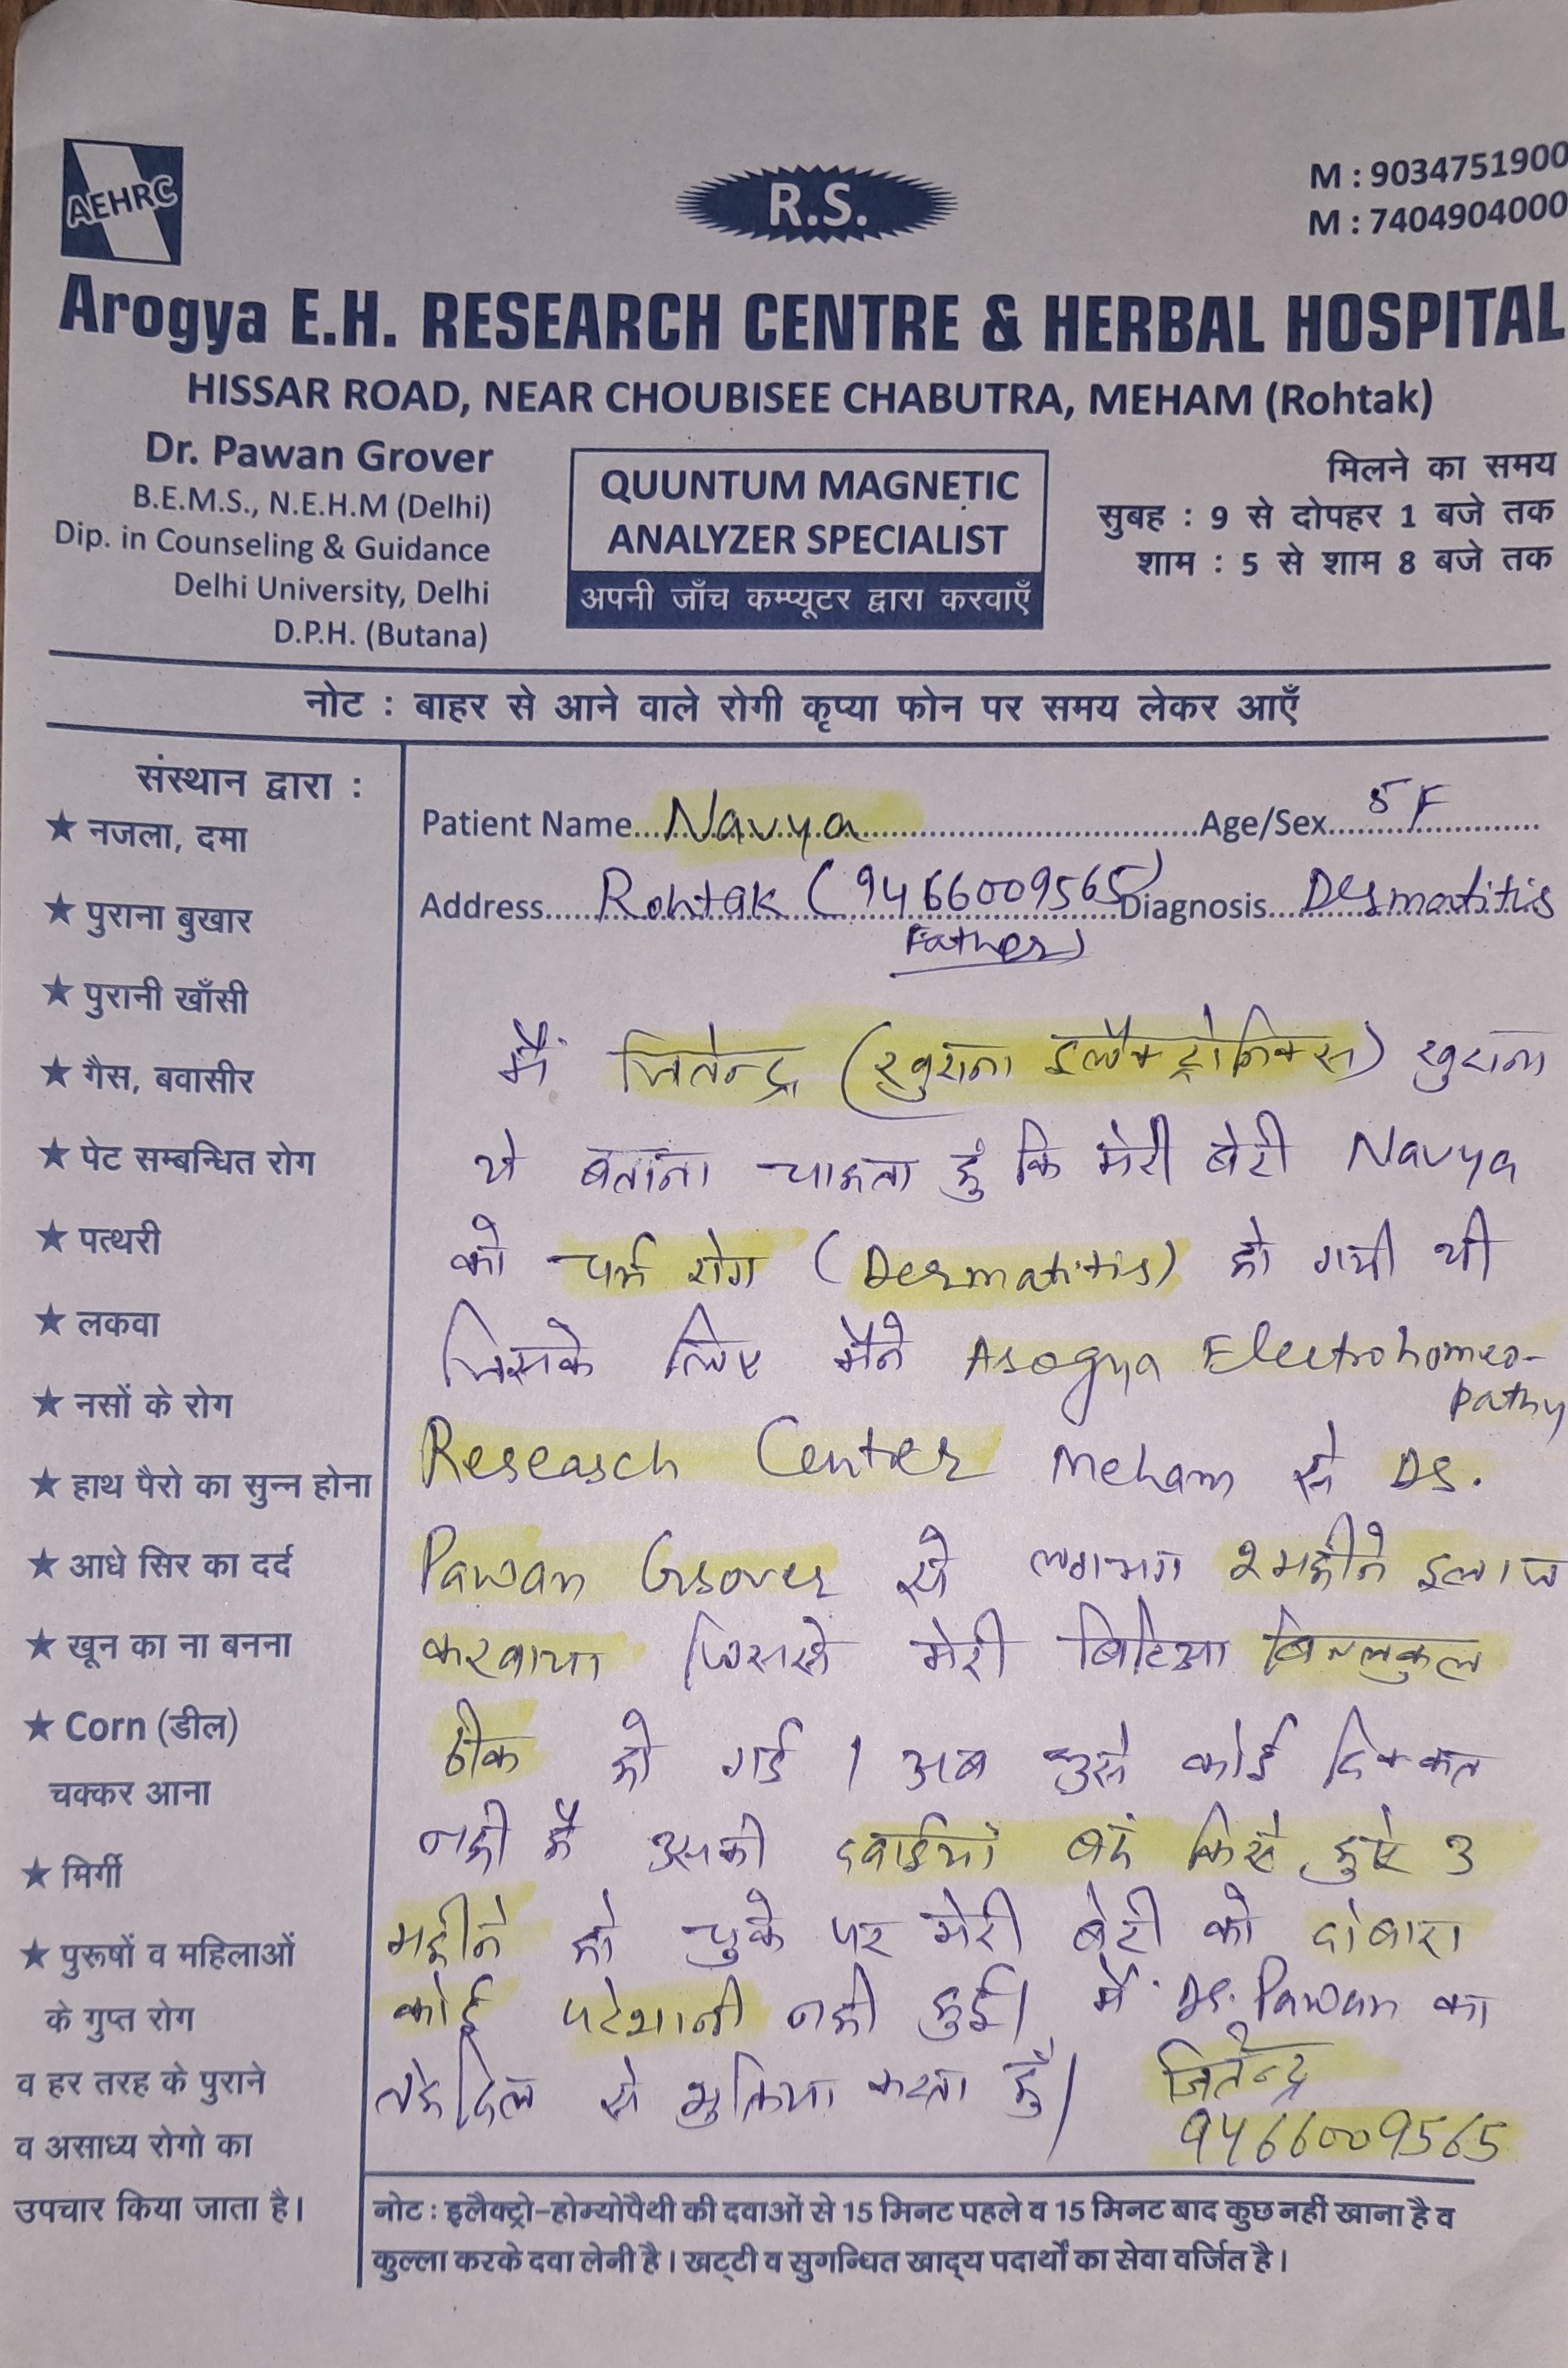 AEHRC
R.S.
M : 9034751900
M : 7404904000
Arogya E.H. RESEARCH CENTRE & HERBAL HOSPITAL
HISSAR ROAD, NEAR CHOUBISEE CHABUTRA, MEHAM (Rohtak)
Dr. Pawan Grover
B.E.M.S., N.E.H.M (Delhi)
Dip. in Counseling & Guidance
Delhi University, Delhi
D.P.H. (Butana)
QUUNTUM MAGNETIC
ANALYZER SPECIALIST
अपनी जाँच कम्प्यूटर द्वारा करवाएँ
मिलने का समय
सुबह : 9 से दोपहर 1 बजे तक
शाम : 5 से शाम 8 बजे तक
नोट : बाहर से आने वाले रोगी कृप्या फोन पर समय लेकर आएँ
संस्थान द्वारा :
★ नजला, दमा
★ पुराना बुखार
★ पुरानी खाँसी
★ गैस, बवासीर
★ पेट सम्बन्धित रोग
★ पत्थरी
★ लकवा
★ नसों के रोग
★ हाथ पैरो का सुन्न होना
★ आधे सिर का दर्द
★ खून का ना बनना
★ Corn (डील)
चक्कर आना
★ मिर्गी
★ पुरूषों व महिलाओं
के गुप्त रोग
व हर तरह के पुराने
व असाध्य रोगो का
उपचार किया जाता है।
Patient Name Navya Age/Sex 5 F
Address Rohtak (9466009565) Diagnosis Dermatitis
Father
मैं जितेन्द्र (खुराना इलैक्ट्रोनिक्स) खुराना
ये बताना चाहता हुं कि मेरी बेटी Navya
को चर्म रोग (Dermatitis) हो गयी थी
जिसके लिए मैंने Arogya Electrohomeo-
pathy
Research Center Meham से Dr.
Pawan Grover से लगभग 2 महीने इलाज
करवाया जिससे मेरी बिटिआ बिल्लकुल
ठीक हो गई । अब उसे कोई दिक्कत
नही है उसकी दवाईयां बंद किये हुऐ 3
महीने हो चुके पर मेरी बेटी को दोबारा
कोई परेशानी नही हुई। मैं Dr. Pawan का
तहेदिल से शुक्रिया करता हुँ।
जितेन्द्र
9466009565
नोट : इलैक्ट्रो-होम्योपैथी की दवाओं से 15 मिनट पहले व 15 मिनट बाद कुछ नहीं खाना है व
कुल्ला करके दवा लेनी है। खट्टी व सुगन्धित खाद्य पदार्थों का सेवा वर्जित है।